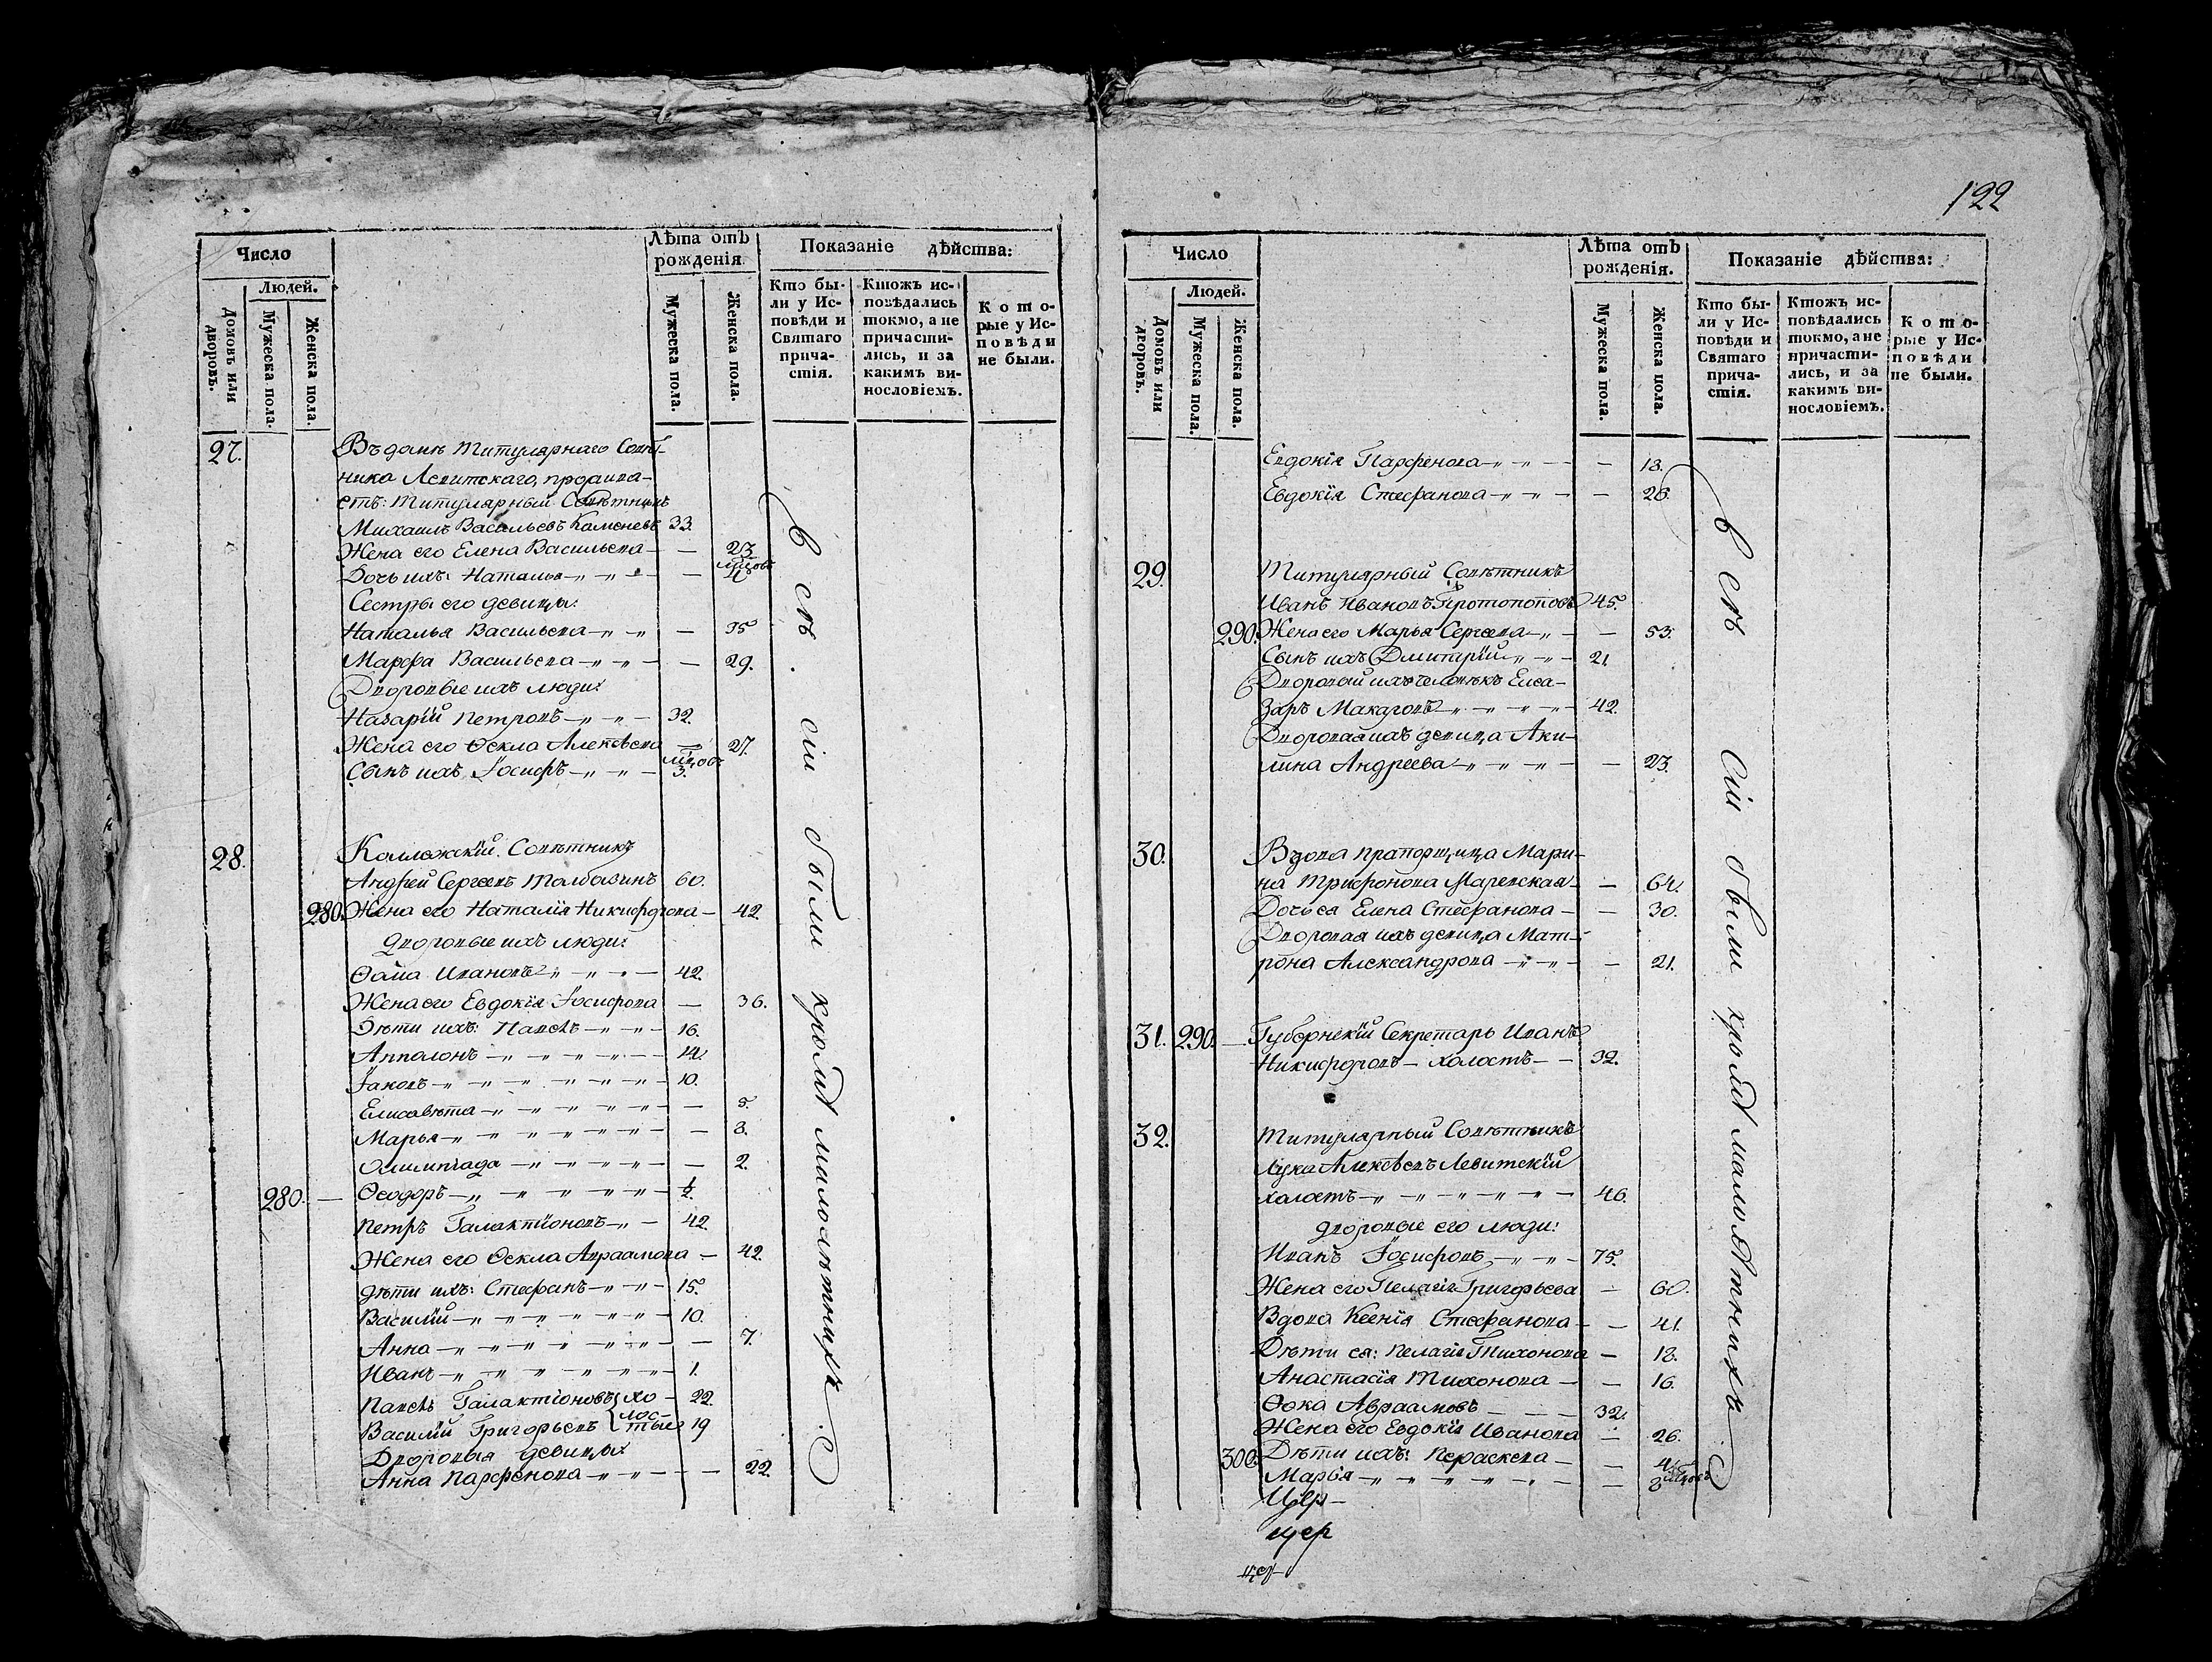 122
Число
Людей.
Домовъ или дворовъ.
Мужеска пола.
Женска пола.
Лѣта отъ рожденія.
Мужеска пола.
Женска пола.
Показаніе дѣйства:
Кто бы-
ли у Ис-
повѣди и
Святаго
прича-
стія.
Ктожъ ис-
повѣдались
токмо, а не
причасти-
лись, и за
какимъ ви-
нословіемъ.
К о т о-
рые у Ис-
п о в ѣ д и
не были.
27. Въ домѣ Титулярнаго Совѣт-
ника Левитскаго, прожива-
етъ: Титулярный Совѣтникъ
Михаилъ Васильевъ Каменевъ 33.
Жена его Елена Васильева — — 23
Дочь ихъ: Наталья —„—„— — мѣсяцовъ 4
Сестры его девицы:
Наталья Васильева —„—„ — 35
Марфа Васильева —„—„— — 29.
Дворовые ихъ люди:
Назарій Петровъ —„—„— 32.
Жена его Ѳекла Алексѣева — 27.
Сынъ ихъ Іосифъ —„—„— мѣсяцовъ 3.
28. Коллежскій Совѣтникъ
Андрей Сергеевъ Талбазинъ 60.
280. Жена его Наталія Никифорова — 42
дворовые ихъ люди:
Ѳома Ивановъ —„—„— 42
Жена его Евдокія Іосифова — 36.
Дѣти ихъ: Павелъ —„—„— 16.
Апполонъ —„—„—„—„— 14.
Іаковъ —„—„—„—„—„— 10.
Елисавѣта —„—„—„—„—„— — 5.
Марья —„—„—„—„—„—„— — 3.
Олимпіада —„—„—„—„— — 2.
280. — Ѳеодоръ —„—„—„—„—„— ½.
Петръ Галактіоновъ —„— 42
Жена его Ѳекла Авраамова — 42.
дѣти ихъ: Стефанъ —„—„— 15.
Василій —„—„—„—„—„— 10.
Анна —„—„—„—„—„— — 7.
Иванъ —„—„—„—„—„— 1.
Павелъ Галактіоновъ { хо- 22.
Василій Григорьевъ { лос-тые 19
Дворовыя девицы:
Анна Парфенова —„—„— — 22.
всѣ сіи были кромѣ малолѣтнихъ.
Число
Людей.
Домовъ или дворовъ.
Мужеска пола.
Женска пола.
Лѣта отъ рожденія.
Мужеска пола.
Женска пола.
Показаніе дѣйства:
Кто бы-
ли у Ис-
повѣди и
Святаго
прича-
стія.
Ктожъ ис-
повѣдались
токмо, а не
причасти-
лись, и за
какимъ ви-
нословіемъ.
К о т о-
рые у Ис-
п о в ѣ д и
не были.
Евдокія Парфенова —„—„— — 18.
Евдокія Стефанова —„—„— — 26.
29. Титулярный Совѣтникъ
Иванъ Ивановъ Протопоповъ 45.
290. Жена его Марья Сергеева —„— — 53.
Сынъ ихъ Дмитрій —„—„— 21.
Дворовый ихъ человѣкъ Елеа-
заръ Макаровъ —„—„—„— 42.
Дворовая ихъ девица Аки-
лина Андреева —„—„—„— — 23.
30. Вдова прапорщица Мари-
на Трифонова Маревская — — 64.
Дочь ея Елена Стефанова — — 30.
Дворовая ихъ девица Мат-
рона Александрова —„—„— — 21.
31. 290. — Губернскій Секретарь Иванъ
Никифоровъ — холостъ — — 32.
32. Титулярный Совѣтникъ
Лука Алексѣевъ Левитскій
холостъ —„—„—„—„—„— 46.
дворовые его люди:
Иванъ Іосифовъ —„—„— 75.
Жена его Пелагія Григорьева — 60.
Вдова Ксенія Стефанова — — 41.
Дѣти ея: Пелагія Тихонова — 18.
Анастасія Тихонова — — 16.
Ѳока Авраамовъ — — — 32.
Жена его Евдокія Иванова — 26.
300. Дѣти ихъ: Параскева — — 4
Марія —„—„—„—„—„— — 8 мѣсяцовъ
Цер-
цер
цер
всѣ сіи были кромѣ малолѣтнихъ.